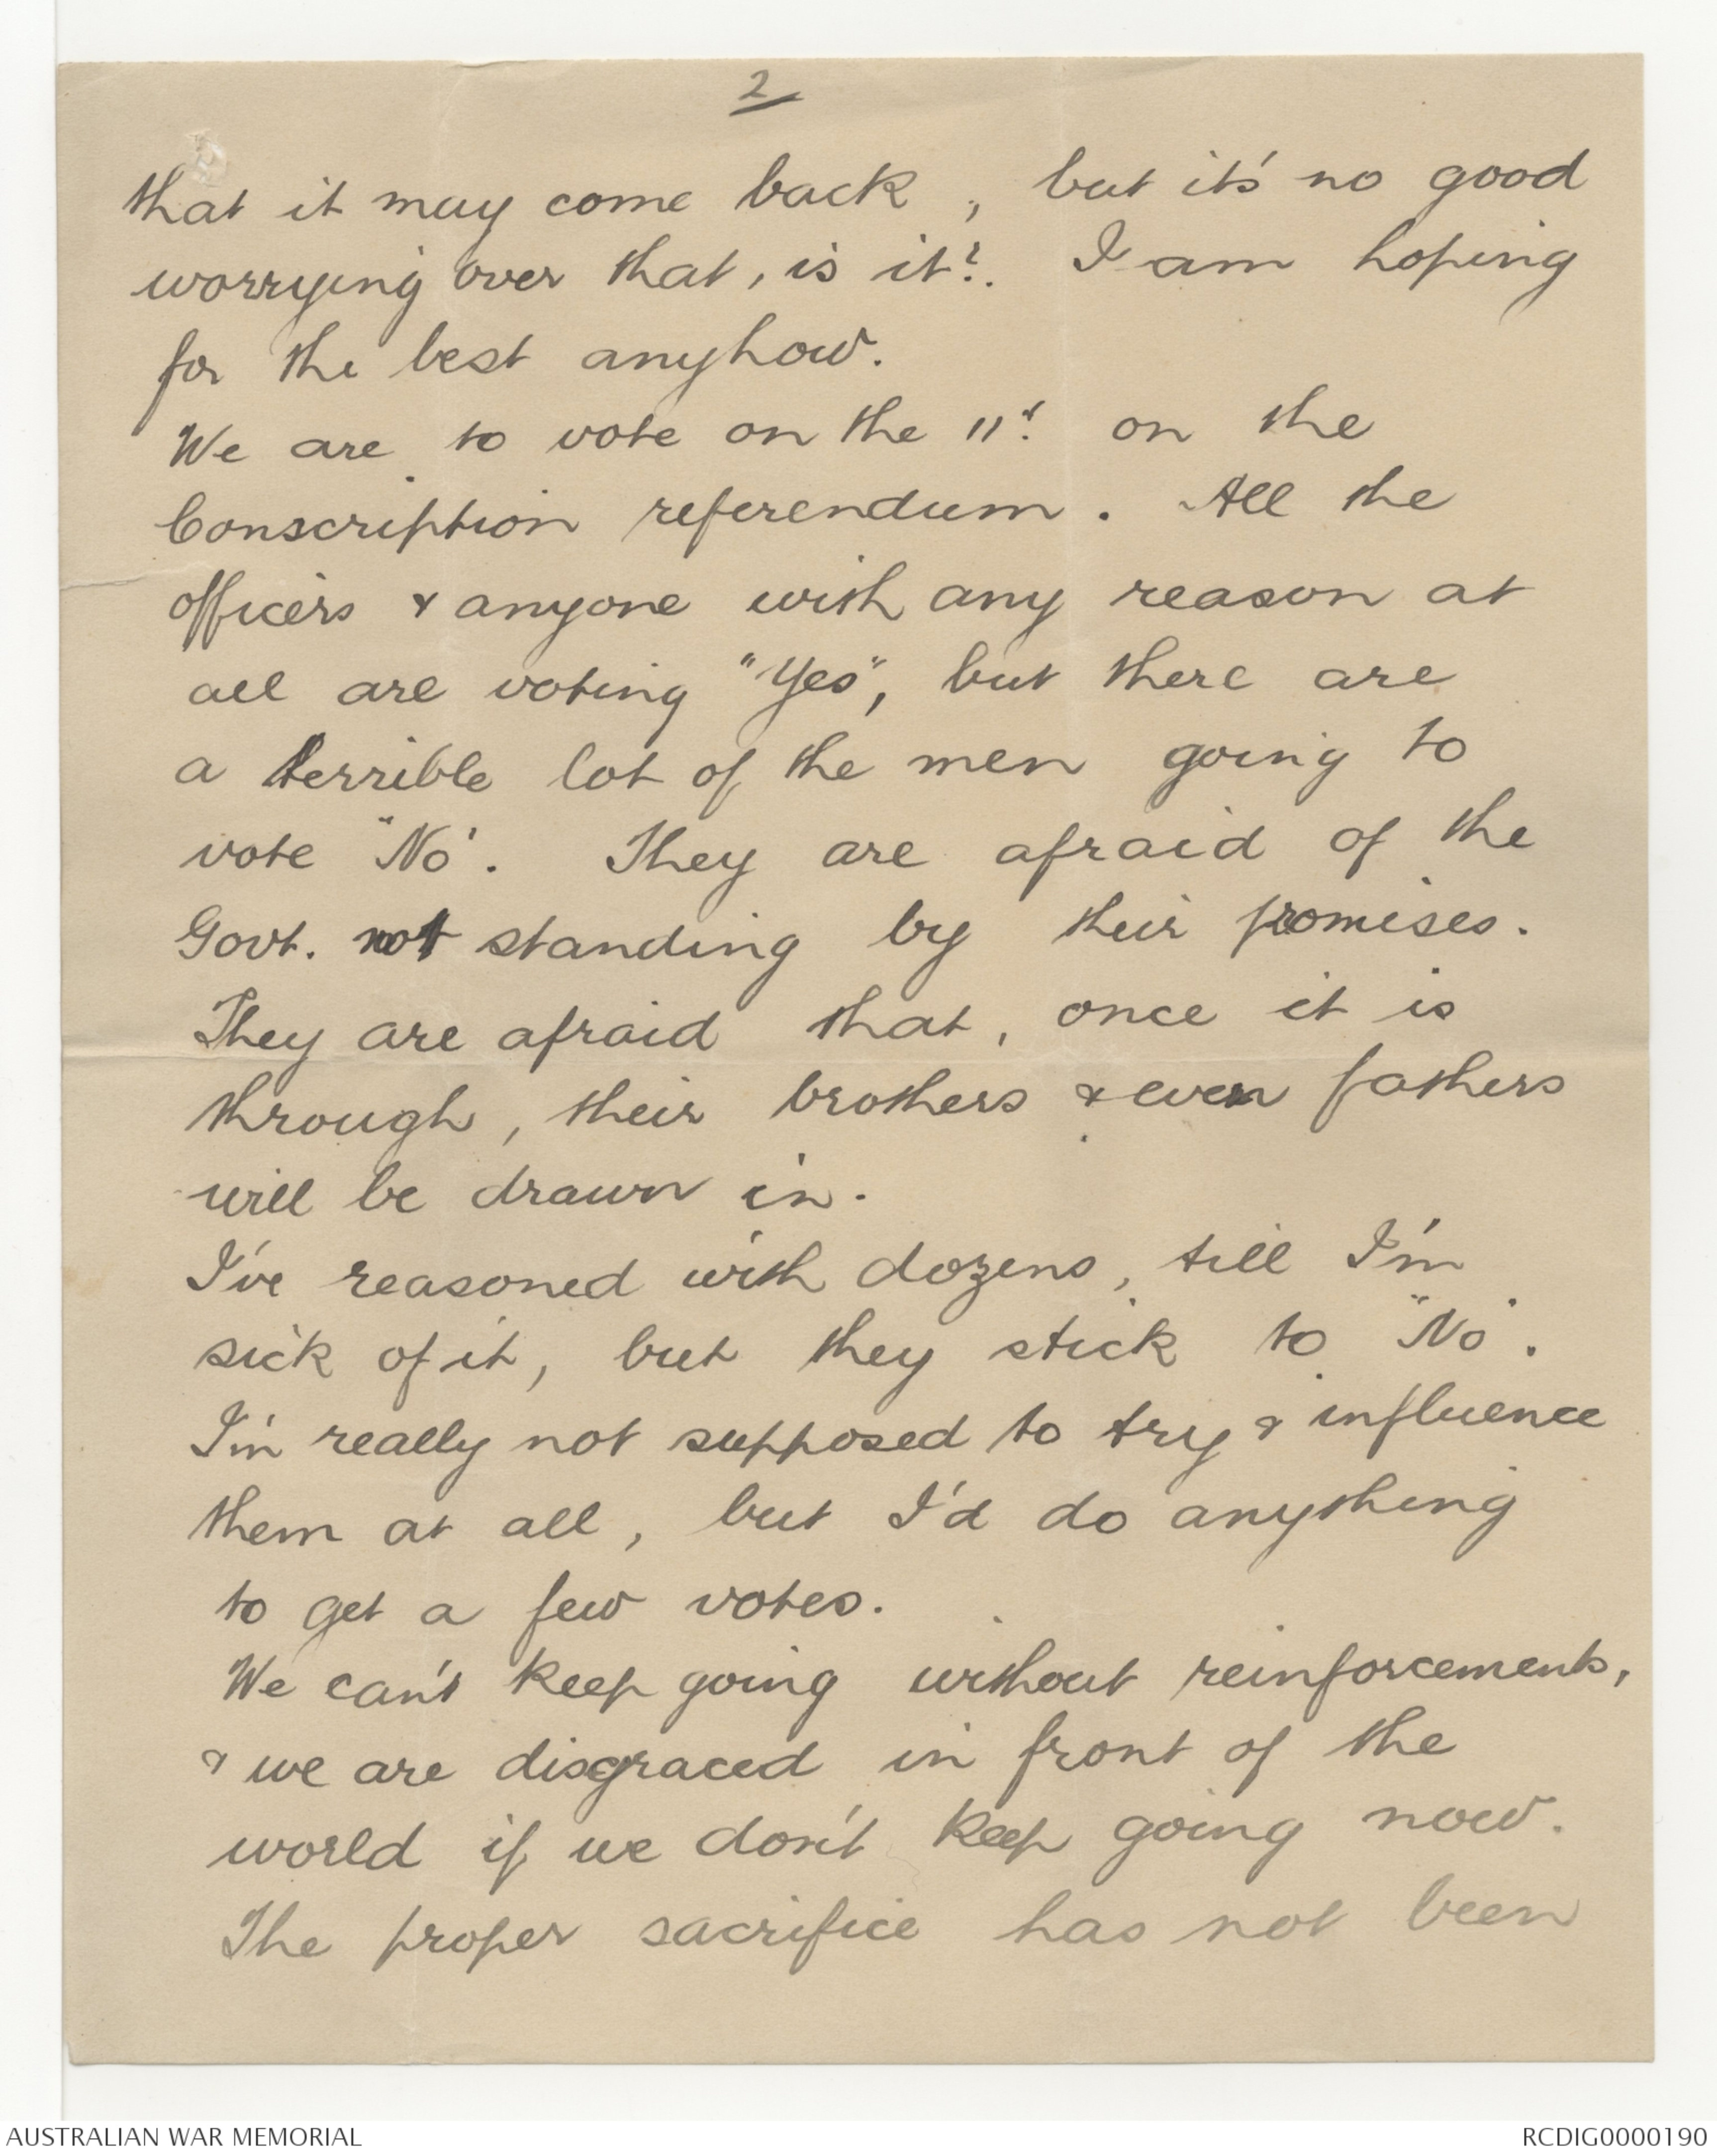 2
that it may come back, but it's no good
worrying over that, is it?. I am hoping
for the best anyhow.
We are to vote on the 11th on the
Conscription referendum. All the
officers & anyone with any reason at
all are voting "Yes", but there are
a terrible lot of the men going to
vote "No". They are afraid of the
Govt. not standing by their promises.
They are afraid that, once it is
through, their brothers & even fathers
will be drawn in.
I've reasoned with dozens, till I'm
sick of it, but they stick to "No".
I'm really not supposed to try & influence
them at all, but I'd do anything
to get a few votes.
We can't keep going without reinforcements,
& we are disgraced in front of the
world if we don't keep going now.
The proper sacrifice has not been
AUSTRALIAN WAR MEMORIAL
RCDIG0000190